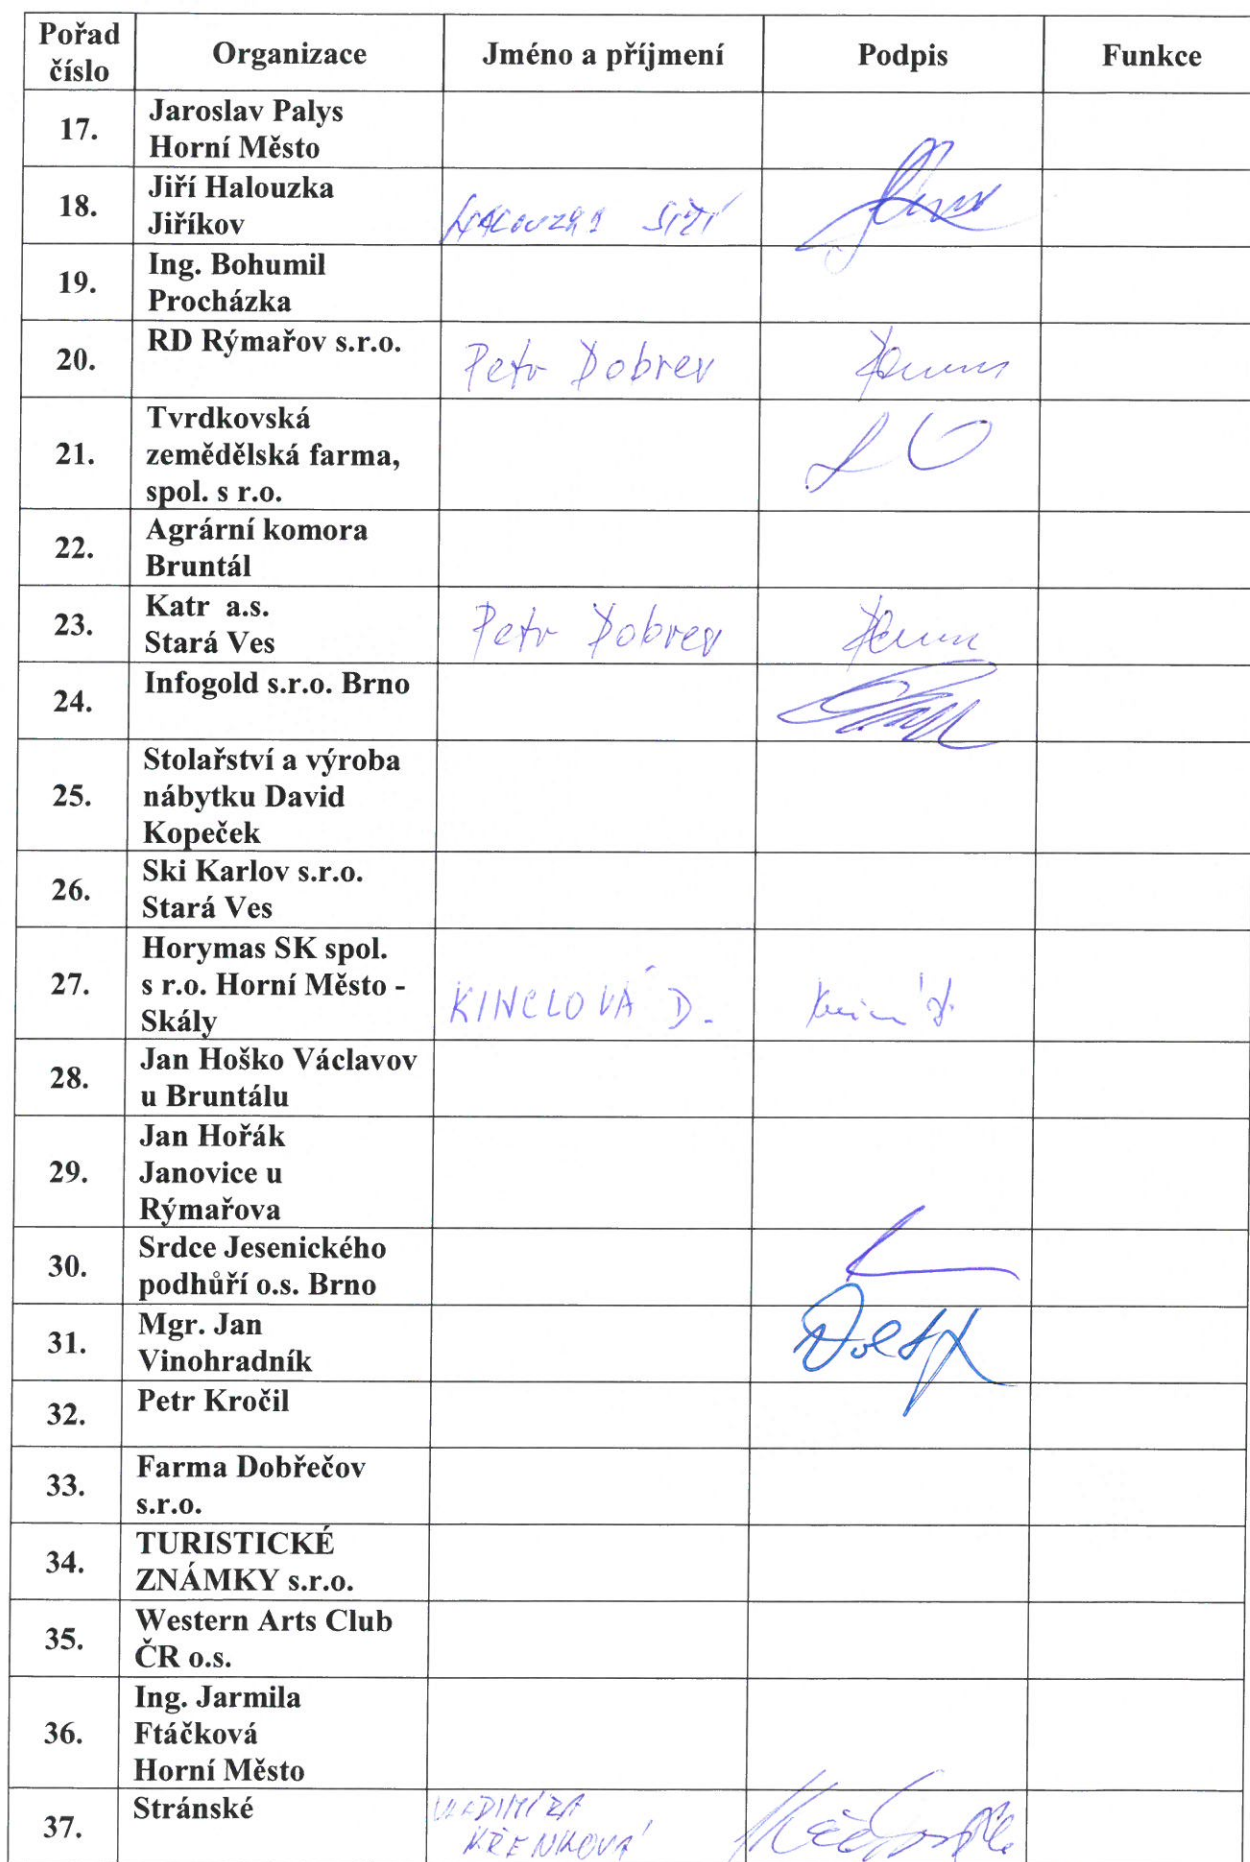 Pořad číslo Organizace Jméno a příjmení Podpis Funkce
17. Jaroslav Palys
Horní Město
18. Jiří Halouzka
Jiříkov
19. Ing. Bohumil
Procházka
20. RD Rýmařov s.r.o. Petr Dobrev
21. Tvrdkovská
zemědělská farma,
spol. s r.o.
22. Agrární komora
Bruntál
23. Katr a.s.
Stará Ves Petr Dobrev
24. Infogold s.r.o. Brno
25. Stolařství a výroba
nábytku David
Kopeček
26. Ski Karlov s.r.o.
Stará Ves
27. Horymas SK spol.
s r.o. Horní Město - KINCLOVÁ D.
Skály
28. Jan Hoško Václavov
u Bruntálu
29. Jan Hořák
Janovice u
Rýmařova
30. Srdce Jesenického
podhůří o.s. Brno
31. Mgr. Jan
Vinohradník
32. Petr Kročil
33. Farma Dobřečov
s.r.o.
34. TURISTICKÉ
ZNÁMKY s.r.o.
35. Western Arts Club
ČR o.s.
36. Ing. Jarmila
Ftáčková
Horní Město
37. Stránské VLADIMÍRA
KŘENKOVÁ